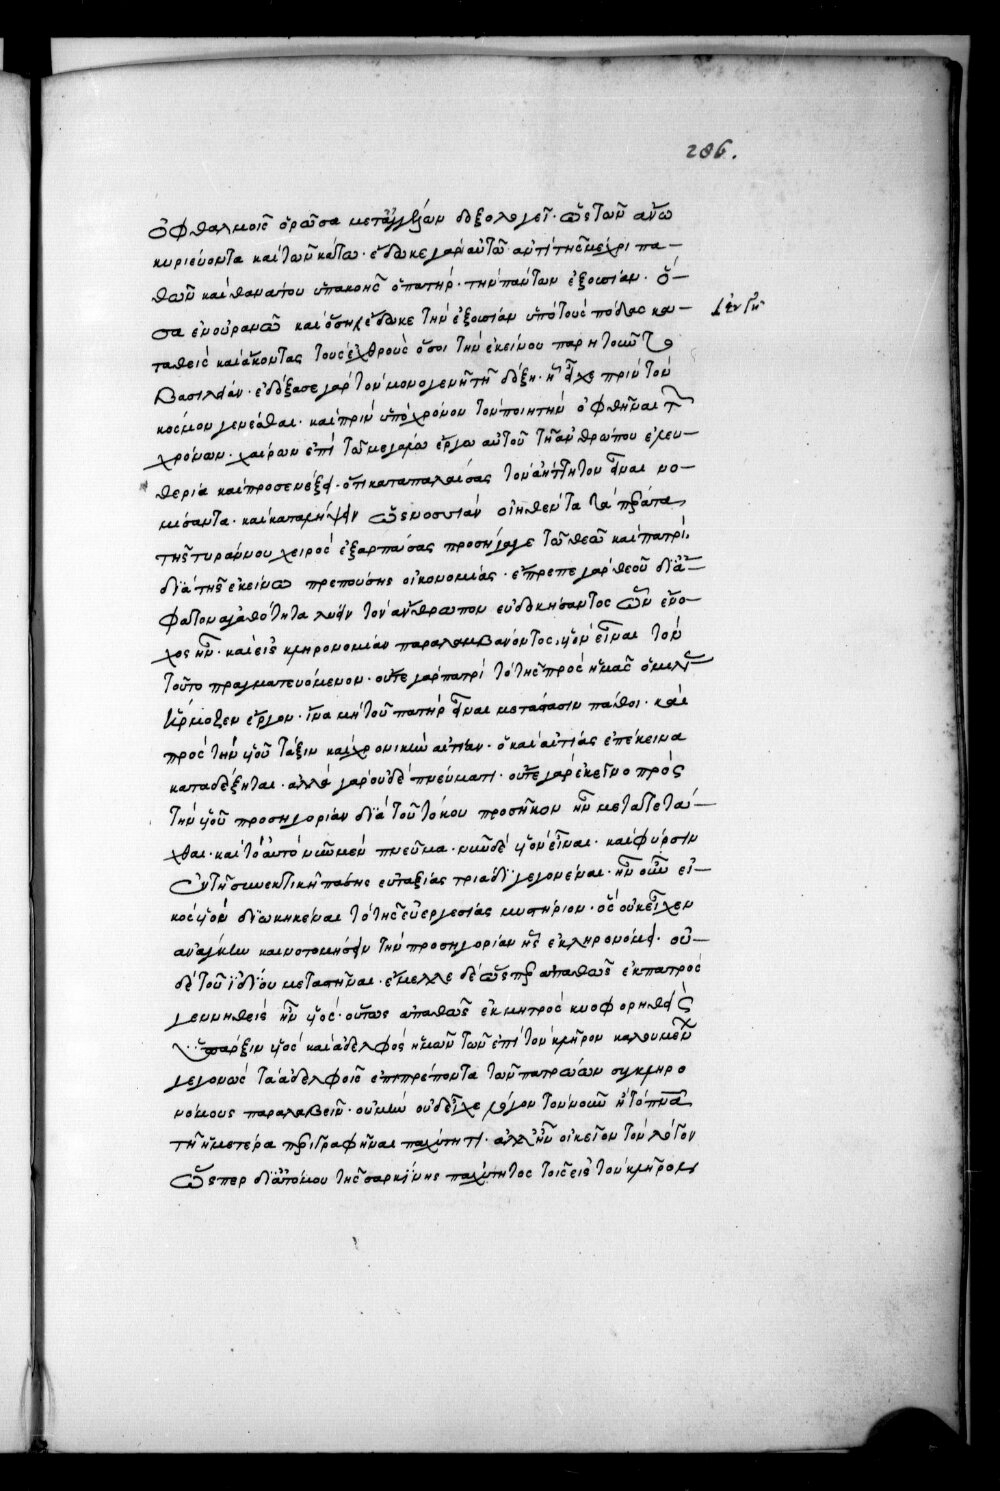 286.
ὀφθαλμοῖς ὁρῶσα μετ' ἀγγέλων δοξολογεῖ. ὡς τῶν ἄνω
κυριεύοντα καὶ τῶν κάτω. ἔδωκε γὰρ αὐτῶ ἀντὶ τῆς μέχρι πα-
θῶν καὶ θανάτου ὑπακοῆς ὁ πατὴρ. τὴν πάντων ἐξουσίαν. ὅ-
σα ἐν οὐρανῶ καὶ ὅση ἔδωκε τὴν ἐξουσίαν ὑπὸ τοὺς πόδας
ἐν γῆ
καὶ ἄκοντας τοὺς ἐχθροὺς ὅσοι τὴν ἐκείνου παρητοῦντο
βασιλείαν. ἐδόξασε γὰρ τὸν μονογενῆ τῆ δόξη. ἣ εἶχε πρὶν τὸν
κόσμον γενέσθαι. καὶ πρὶν ὑπὸ χρόνον τὸν ποιητὴν ὀφθῆναι τῶν
χρόνων. χαίρων ἐπὶ τῶ μεγάλω ἔργω αὐτοῦ τῆ ἀνθρώπου ἐλευ-
θερία καὶ προσενέξει. ὅτι καταπαλαίσας τὸν ἀήττητον εἶναι νο-
μίσαντα. καὶ καταλήψειν ὡς νοσσιὰν οἰηθέντα τὰ πέρατα
τῆς τυράννου χειρὸς ἐξαρπάσας προσήγαγε τῶ θεῶ καὶ πατρὶ.
διὰ τῆς ἐκείνω πρεπούσης οἰκονομίας. ἔπρεπε γὰρ θεοῦ δι' ἄ-
φατον ἀγαθότητα λύειν τὸν ἄνθρωπον εὐδοκήσαντος ὧν ἔνο-
χος ἦν. καὶ εἰς κληρονομίαν παραλαμβάνοντος, υἱὸν εἶναι τὸν
τοῦτο πραγματευόμενον. οὔτε γὰρ πατρὶ τὸ τῆς πρὸς ἡμᾶς
ἥρμοζεν ἔργον. ἵνα μὴ τοῦ πατὴρ εἶναι μετάστασιν πάθοι. καὶ
πρὸς τὴν υἱοῦ τάξιν καὶ χρονικὴν αἰτίαν. ὁ καὶ αἰτίας ἐπέκεινα
καταδέξηται. ἀλλὰ γὰρ οὐδὲ πνεύματι. οὔτε γὰρ ἐκεῖνο πρὸς
τὴν υἱοῦ προσηγορίαν διὰ τοῦ τόκου προσῆκον ἦν μετατετά-
χθαι. καὶ τὸ αὐτὸ νῦν μὲν πνεῦμα. νῦν δὲ υἱὸν εἶναι. καὶ φύρσιν
ἐν τῆ συνεκτικῆ πάσης εὐταξίας τριάδι γεγονέναι. ἦν οὖν εἰ-
κὸς υἱὸν διωκηκέναι τὸ τῆς εὐεργεσίας μυστήριον. ὃς οὐκ εἶχεν
ἀνάγκην καινοτομήσειν τὴν προσηγορίαν ἧς ἐκληρονόμει. οὐ-
δὲ τοῦ ἰδίου μεταστῆναι. ἔμελλε δὲ ὥσπερ ἀπαθῶς ἐκ πατρὸς
γεννηθεὶς ἦν υἱὸς. οὕτως ἀπαθῶς ἐκ μητρὸς κυοφορηθεὶς
ὑπάρξειν υἱὸς καὶ ἀδελφὸς ἡμῶν τῶν ἐπὶ τὸν κλῆρον καλουμένων
γεγονὼς τὰ ἀδελφοῖς ἐπιπρέποντα τῶν πατρώων συγκληρο
νόμους παραλαβεῖν. οὐ μὴν οὐδ' εἶχε λόγον τὸν νοῦν ἢ τὸ πνεῦμα
τῆ ἡμετέρα περιγραφῆναι παχύτητι. ἀλλ' ἦν οἰκεῖον τὸν λόγον
ὥσπερ διὰ τόμου τῆς σαρκίνης παχύτητος τοῖς εἰς τὸν κλῆρον